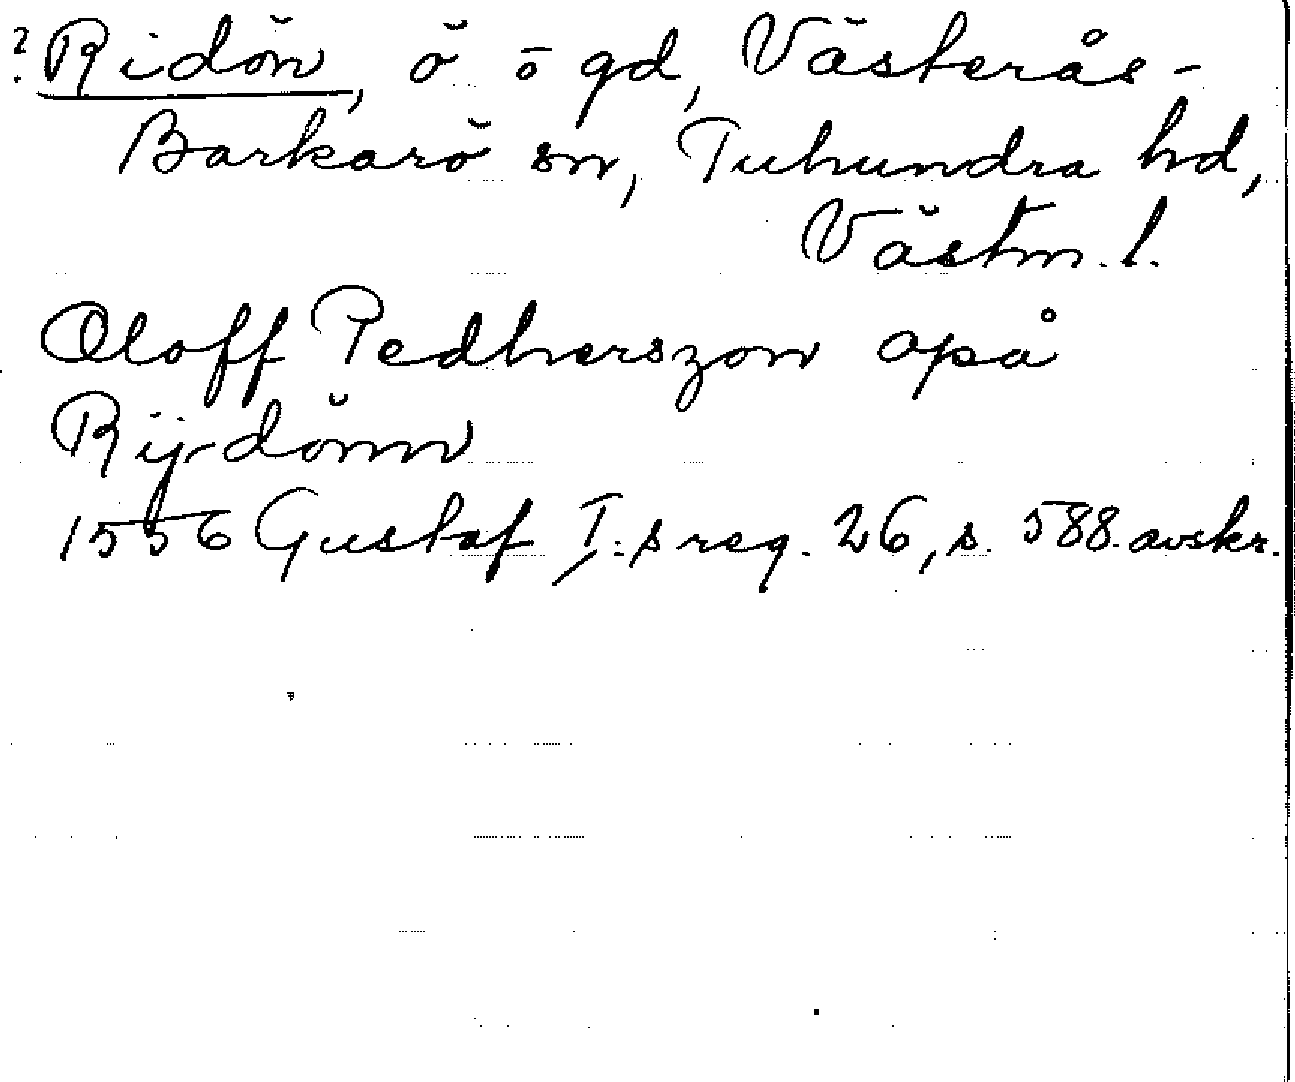 ? Ridön, ö o gd, Västerås-
Barkarö sn, Tuhundra hd,
Västm. l.
Oloff Pedherszon opå
Rijdönn
1556 Gustaf I:s reg. 26, s. 588. avskr.